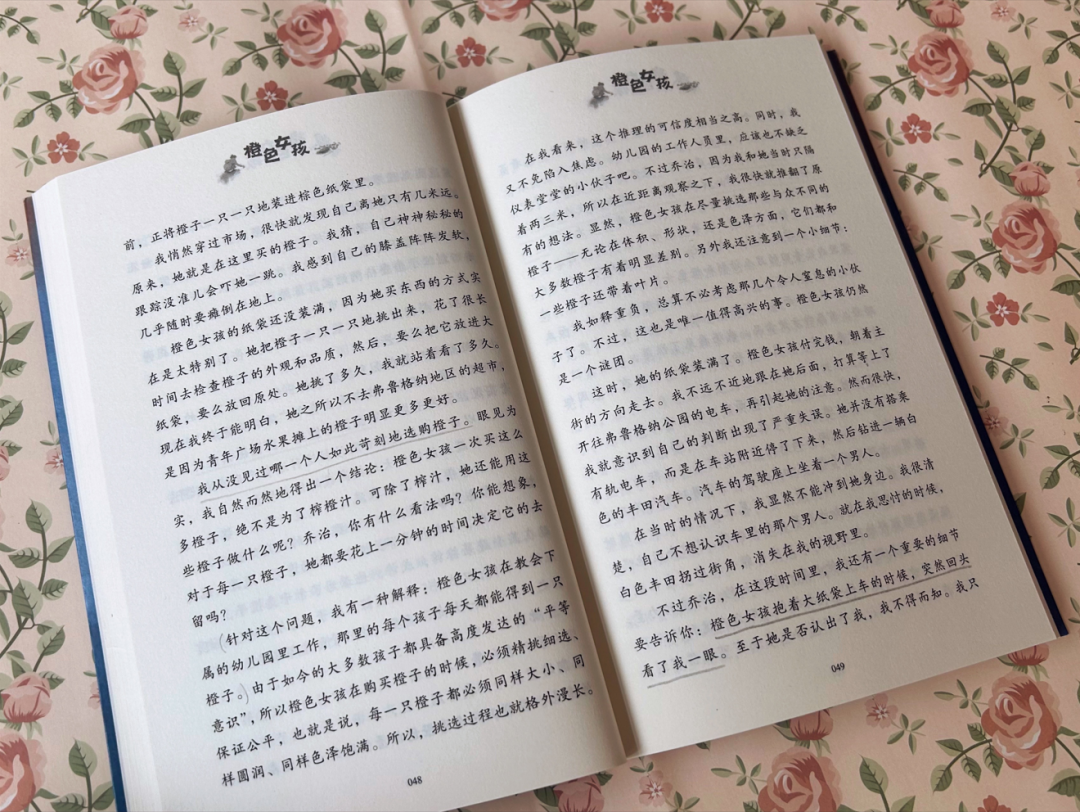 橙色女孩
前，正将橙子一只一只地装进棕色纸袋里。
我悄然穿过市场，很快就发现自己离她只有几米远。
原来，她就是在这里买的橙子。我猜，自己神神秘秘的
跟踪没准儿会吓她一跳。我感到自己的膝盖阵阵发软，
几乎随时要瘫倒在地上。
橙色女孩的纸袋还没装满，因为她买东西的方式实
在是太特别了。她把橙子一只一只地挑出来，花了很长
时间去检查橙子的外观和品质，然后，要么把它放进大
纸袋，要么放回原处。她挑了多久，我就站着看了多久。
现在我终于能明白，她之所以不去弗鲁格纳地区的超市，
是因为青年广场水果摊上的橙子明显更多更好。
我从没见过哪一个人如此苛刻地选购橙子。眼见为
实，我自然而然地得出一个结论：橙色女孩一次买这么
多橙子，绝不是为了榨橙汁。可除了榨汁，她还能用这
些橙子做什么呢？乔治，你有什么看法吗？你能想象，
对于每一只橙子，她都要花上一分钟的时间决定它的去
留吗？
针对这个问题，我有一种解释：橙色女孩在教会下
属的幼儿园里工作，那里的每个孩子每天都能得到一只
橙子。由于如今的大多数孩子都具备高度发达的“平等
意识”，所以橙色女孩在购买橙子的时候，必须精挑细选、
保证公平，也就是说，每一只橙子都必须同样大小、同
样圆润、同样色泽饱满。所以，挑选过程也就格外漫长。
048
橙色女孩
在我看来，这个推理的可信度相当之高。同时，我
又不免陷入焦虑。幼儿园的工作人员里，应该也不缺乏
仪表堂堂的小伙子吧。不过乔治，因为我和她当时只隔
着两三米，所以在近距离观察之下，我很快就推翻了原
有的想法。显然，橙色女孩在尽量挑选那些与众不同的
橙子——无论在体积、形状，还是色泽方面，它们都和
大多数橙子有着明显差别。另外我还注意到一个小细节：
一些橙子还带着叶片。
我如释重负，总算不必考虑那几个令人窒息的小伙
子了。不过，这也是唯一值得高兴的事。橙色女孩仍然
是一个谜团。
这时，她的纸袋装满了。橙色女孩付完钱，朝着主
街的方向走去。我不远不近地跟在她后面，打算等上了
开往弗鲁格纳公园的电车，再引起她的注意。然而很快，
我就意识到自己的判断出现了严重失误。她并没有搭乘
有轨电车，而是在车站附近停了下来，然后钻进一辆白
色的丰田汽车。汽车的驾驶座上坐着一个男人。
在当时的情况下，我显然不能冲到她身边。我很清
楚，自己不想认识车里的那个男人。就在我思忖的时候，
白色丰田拐过街角，消失在我的视野里。
不过乔治，在这段时间里，我还有一个重要的细节
要告诉你：橙色女孩抱着大纸袋上车的时候，突然回头
看了我一眼。至于她是否认出了我，我不得而知。我只
049